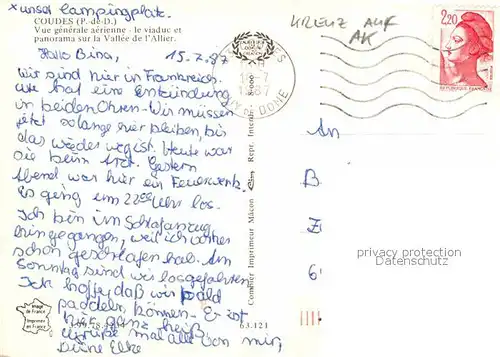 x unser Campingplatz.
COUDES (P.-de-D.)
Vue générale aérienne - le viaduc et
panorama sur la Vallée de l'Allier.
KREUZ AUF
AK
2,20
REPUBLIQUE FRANCAISE
Hallo Bina, 15.7.87
Wir sind hier in Frankreich.
Ute hat eine Entzündung
in beiden Ohren. Wir müssen
jetzt solange hier bleiben, bis
das wieder weg ist. Heute war
sie beim Arzt. Gestern
Abend war hier ein Feuerwerk.
Es ging um 22 00 Uhr los.
Ich bin im Schlafanzug
hingegangen, weil ich vorher
schon geschlafen hab. Am
Sonntag sind wir losgefahren
Ich hoffe, daß wir bald
paddeln können. Es ist
hier ganz heiß
Grüße mal alle von mir,
Deine Elke
PUY DE DOME
An
B
Z
6
privacy protection
Datenschutz
Combier Imprimeur Mâcon Repr. Interdite
Image de France
Imprimée en France
63.121